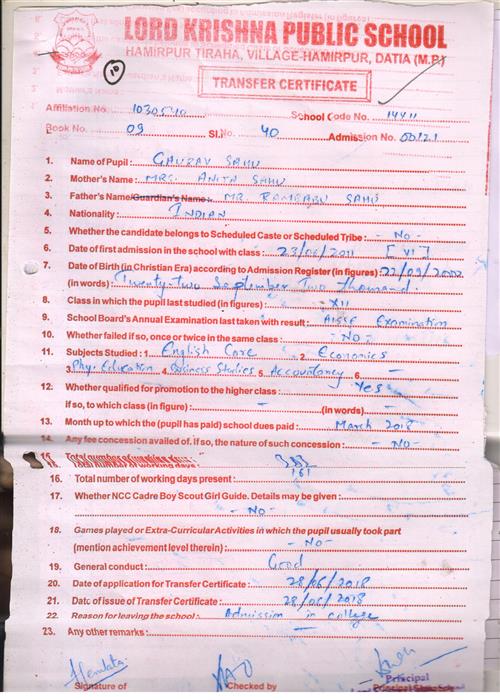 LORD KRISHNA PUBLIC SCHOOL
HAMIRPUR TIRAHA, VILLAGE-HAMIRPUR, DATIA (M.P.)
10
TRANSFER CERTIFICATE
Affiliation No. 1030540 School Code No. 14411
Book No. 09 Sl.No. 40 Admission No. 00121
1. Name of Pupil : GAURAV SAHU
2. Mother's Name : MRS. ANITA SAHU
3. Father's Name/Guardian's Name : MR. RAMBABU SAHU
4. Nationality : INDIAN
5. Whether the candidate belongs to Scheduled Caste or Scheduled Tribe : - No -
6. Date of first admission in the school with class : 23/06/2011 [VI]
7. Date of Birth (in Christian Era) according to Admission Register (in figures) : 22/09/2000
(in words) : Twenty-two September Two Thousand.
8. Class in which the pupil last studied (in figures) : XII
9. School Board's Annual Examination last taken with result : AISSE Examination
10. Whether failed if so, once or twice in the same class : - No -
11. Subjects Studied : 1. English Core 2. Economics
3. Phy. Education 4. Business Studies 5. Accountancy 6. -
12. Whether qualified for promotion to the higher class : Yes
if so, to which class (in figure) : - (in words) -
13. Month up to which the (pupil has paid) school dues paid : March 2018
14. Any fee concession availed of. if so, the nature of such concession : - No -
15. Total number of working days :
16. Total number of working days present : 161
17. Whether NCC Cadre Boy Scout Girl Guide. Details may be given :
- No -
18. Games played or Extra-Curricular Activities in which the pupil usually took part
(mention achievement level therein) : - No -
19. General conduct : Good
20. Date of application for Transfer Certificate : 28/06/2018
21. Date of issue of Transfer Certificate : 28/06/2018
22. Reason for leaving the school : Admission in college
23. Any other remarks :
Signature of Checked by Principal